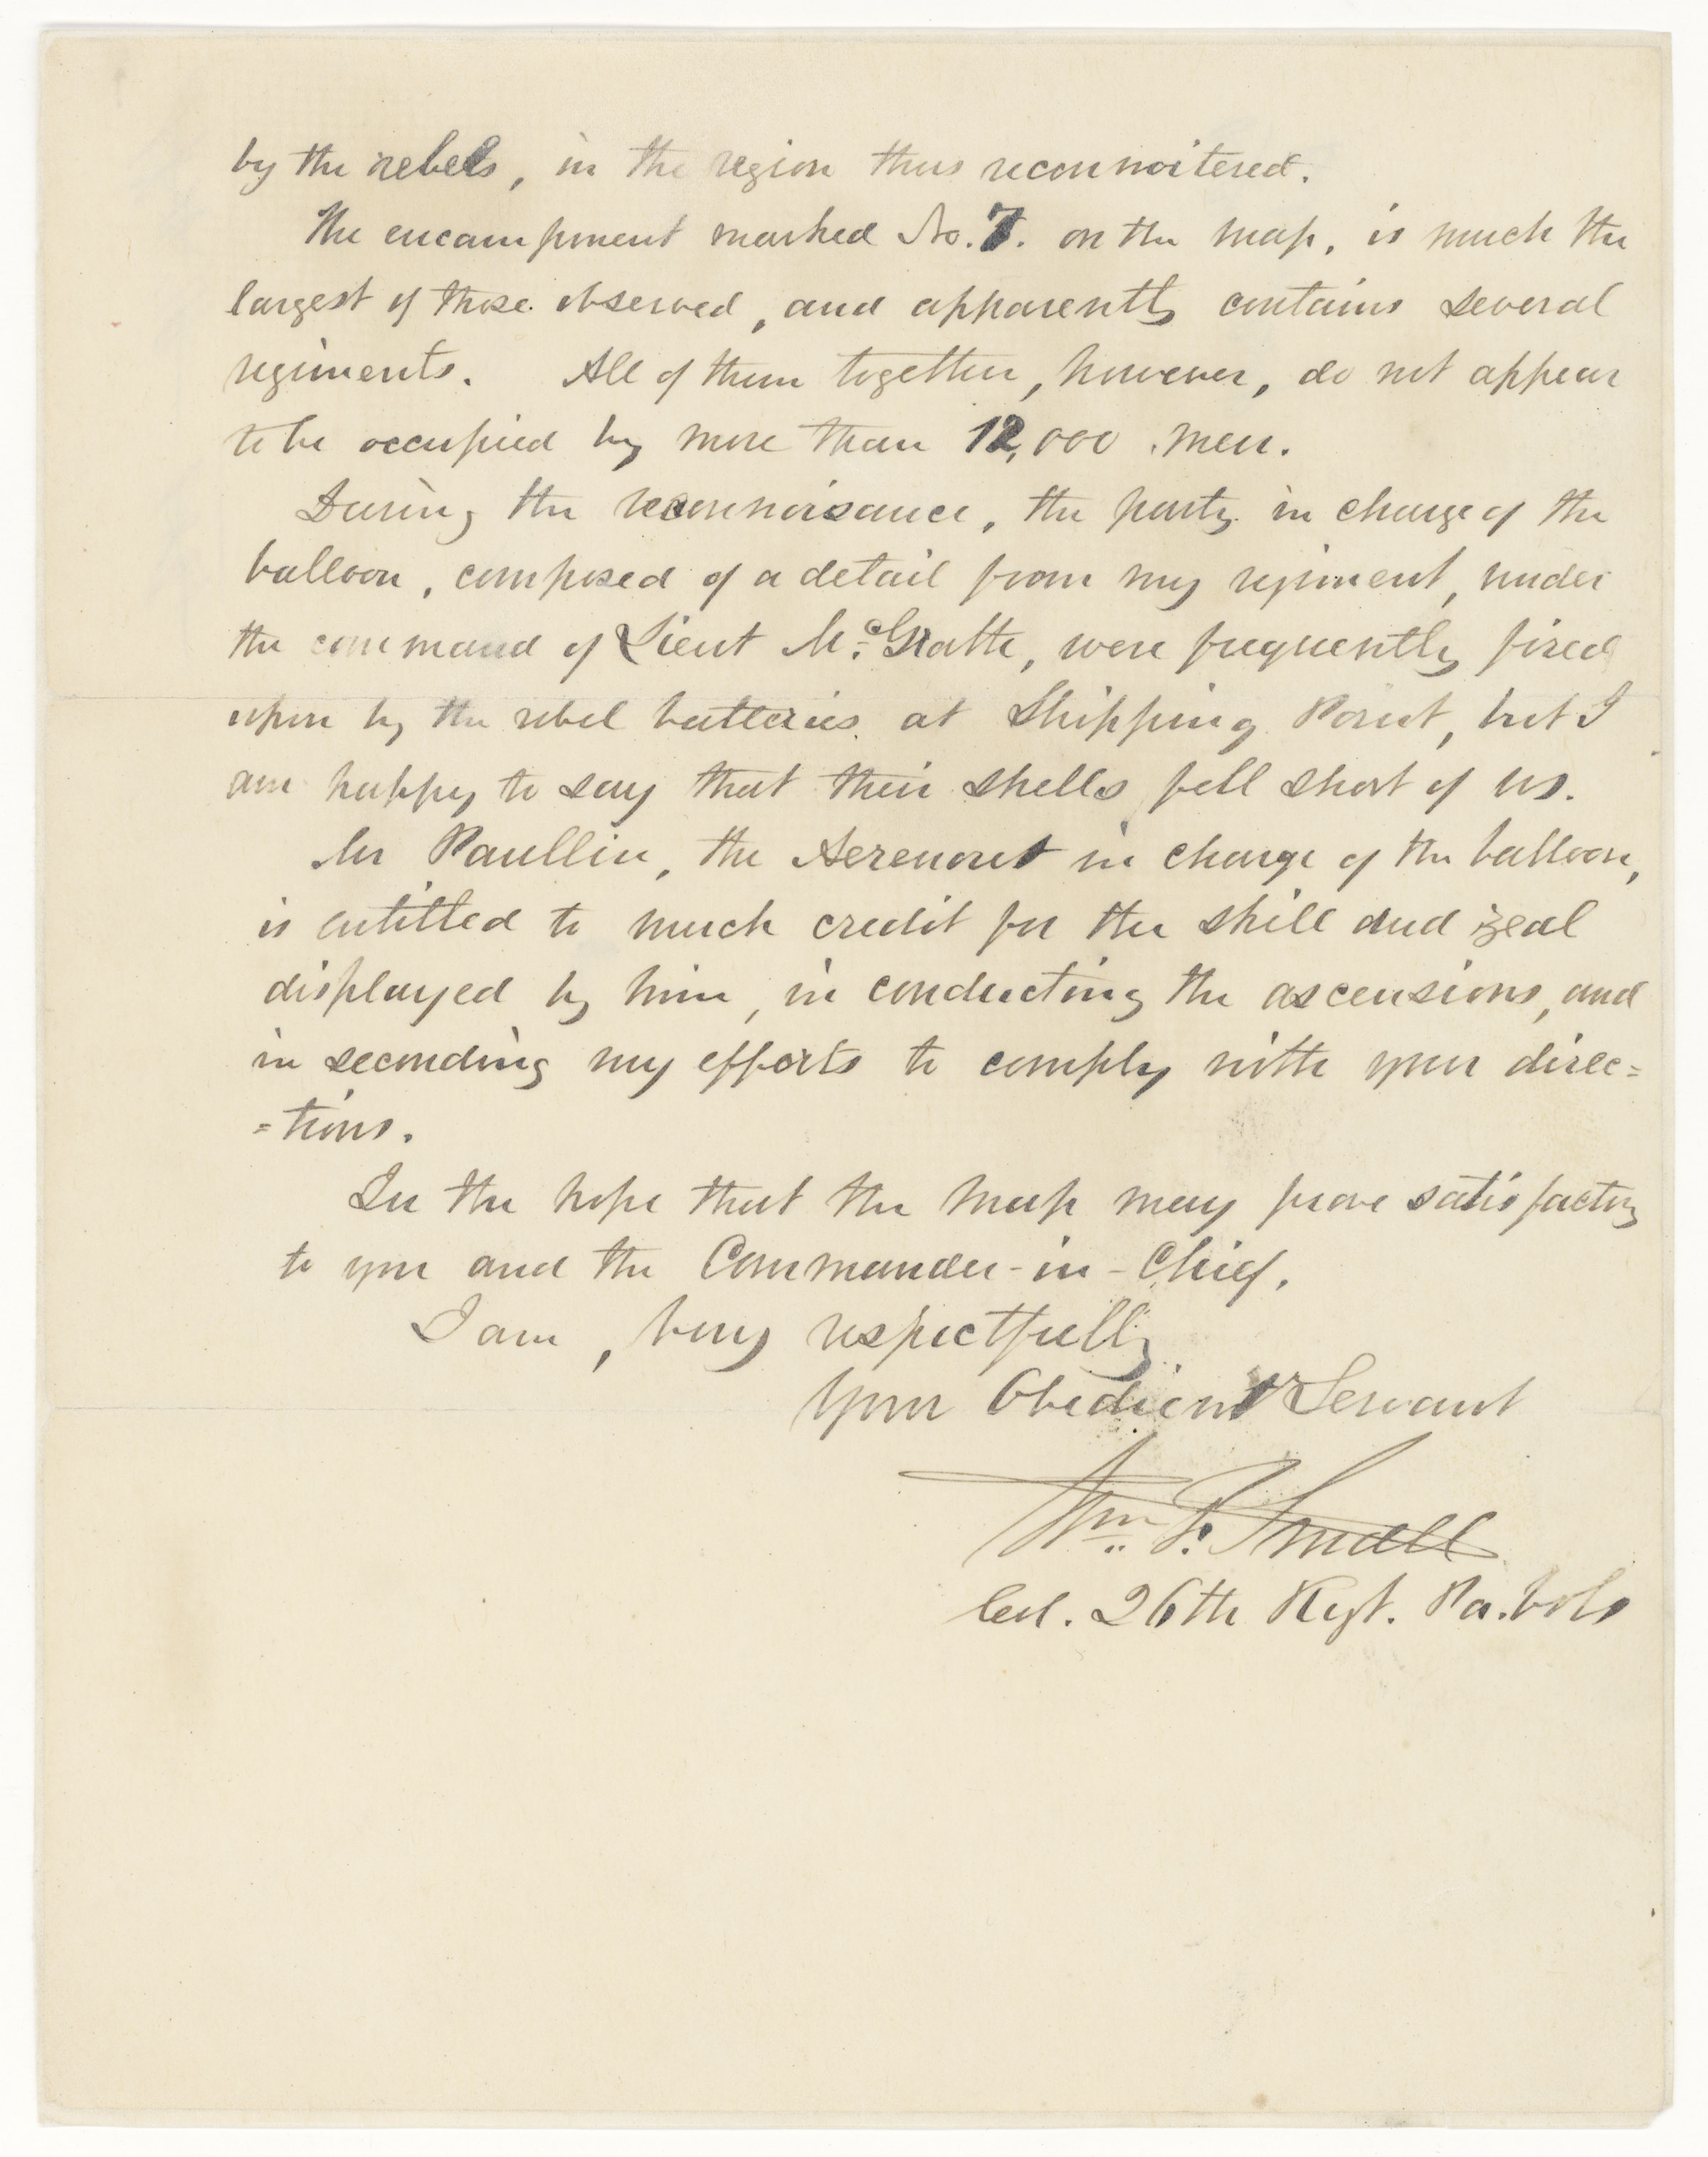 by the rebels, in the region thus reconnoitered.
The encampment marked No. 7. on the map, is much the
largest of those observed, and apparently contains several
regiments. All of them together, however, do not appear
to be occupied by more than 12,000 men.
During the reconnoisance, the party in charge of the
balloon, composed of a detail from my regiment, under
the command of Lieut McGrath, were frequently fired
upon by the rebel batteries at Shipping Point, but I
am happy to say that their shells fell short of us.
Mr Paullin, the Aeronaut in charge of the balloon,
is entitled to much credit for the skill and zeal
displayed by him, in conducting the ascensions, and
in seconding my efforts to comply with your direc=
=tions.
In the hope that the map may prove satisfactory
to you and the Commander-in-Chief,
I am, very respectfully
Your Obedient Servant
Wm. F. Small
Col. 26th Regt. Pa. Vols